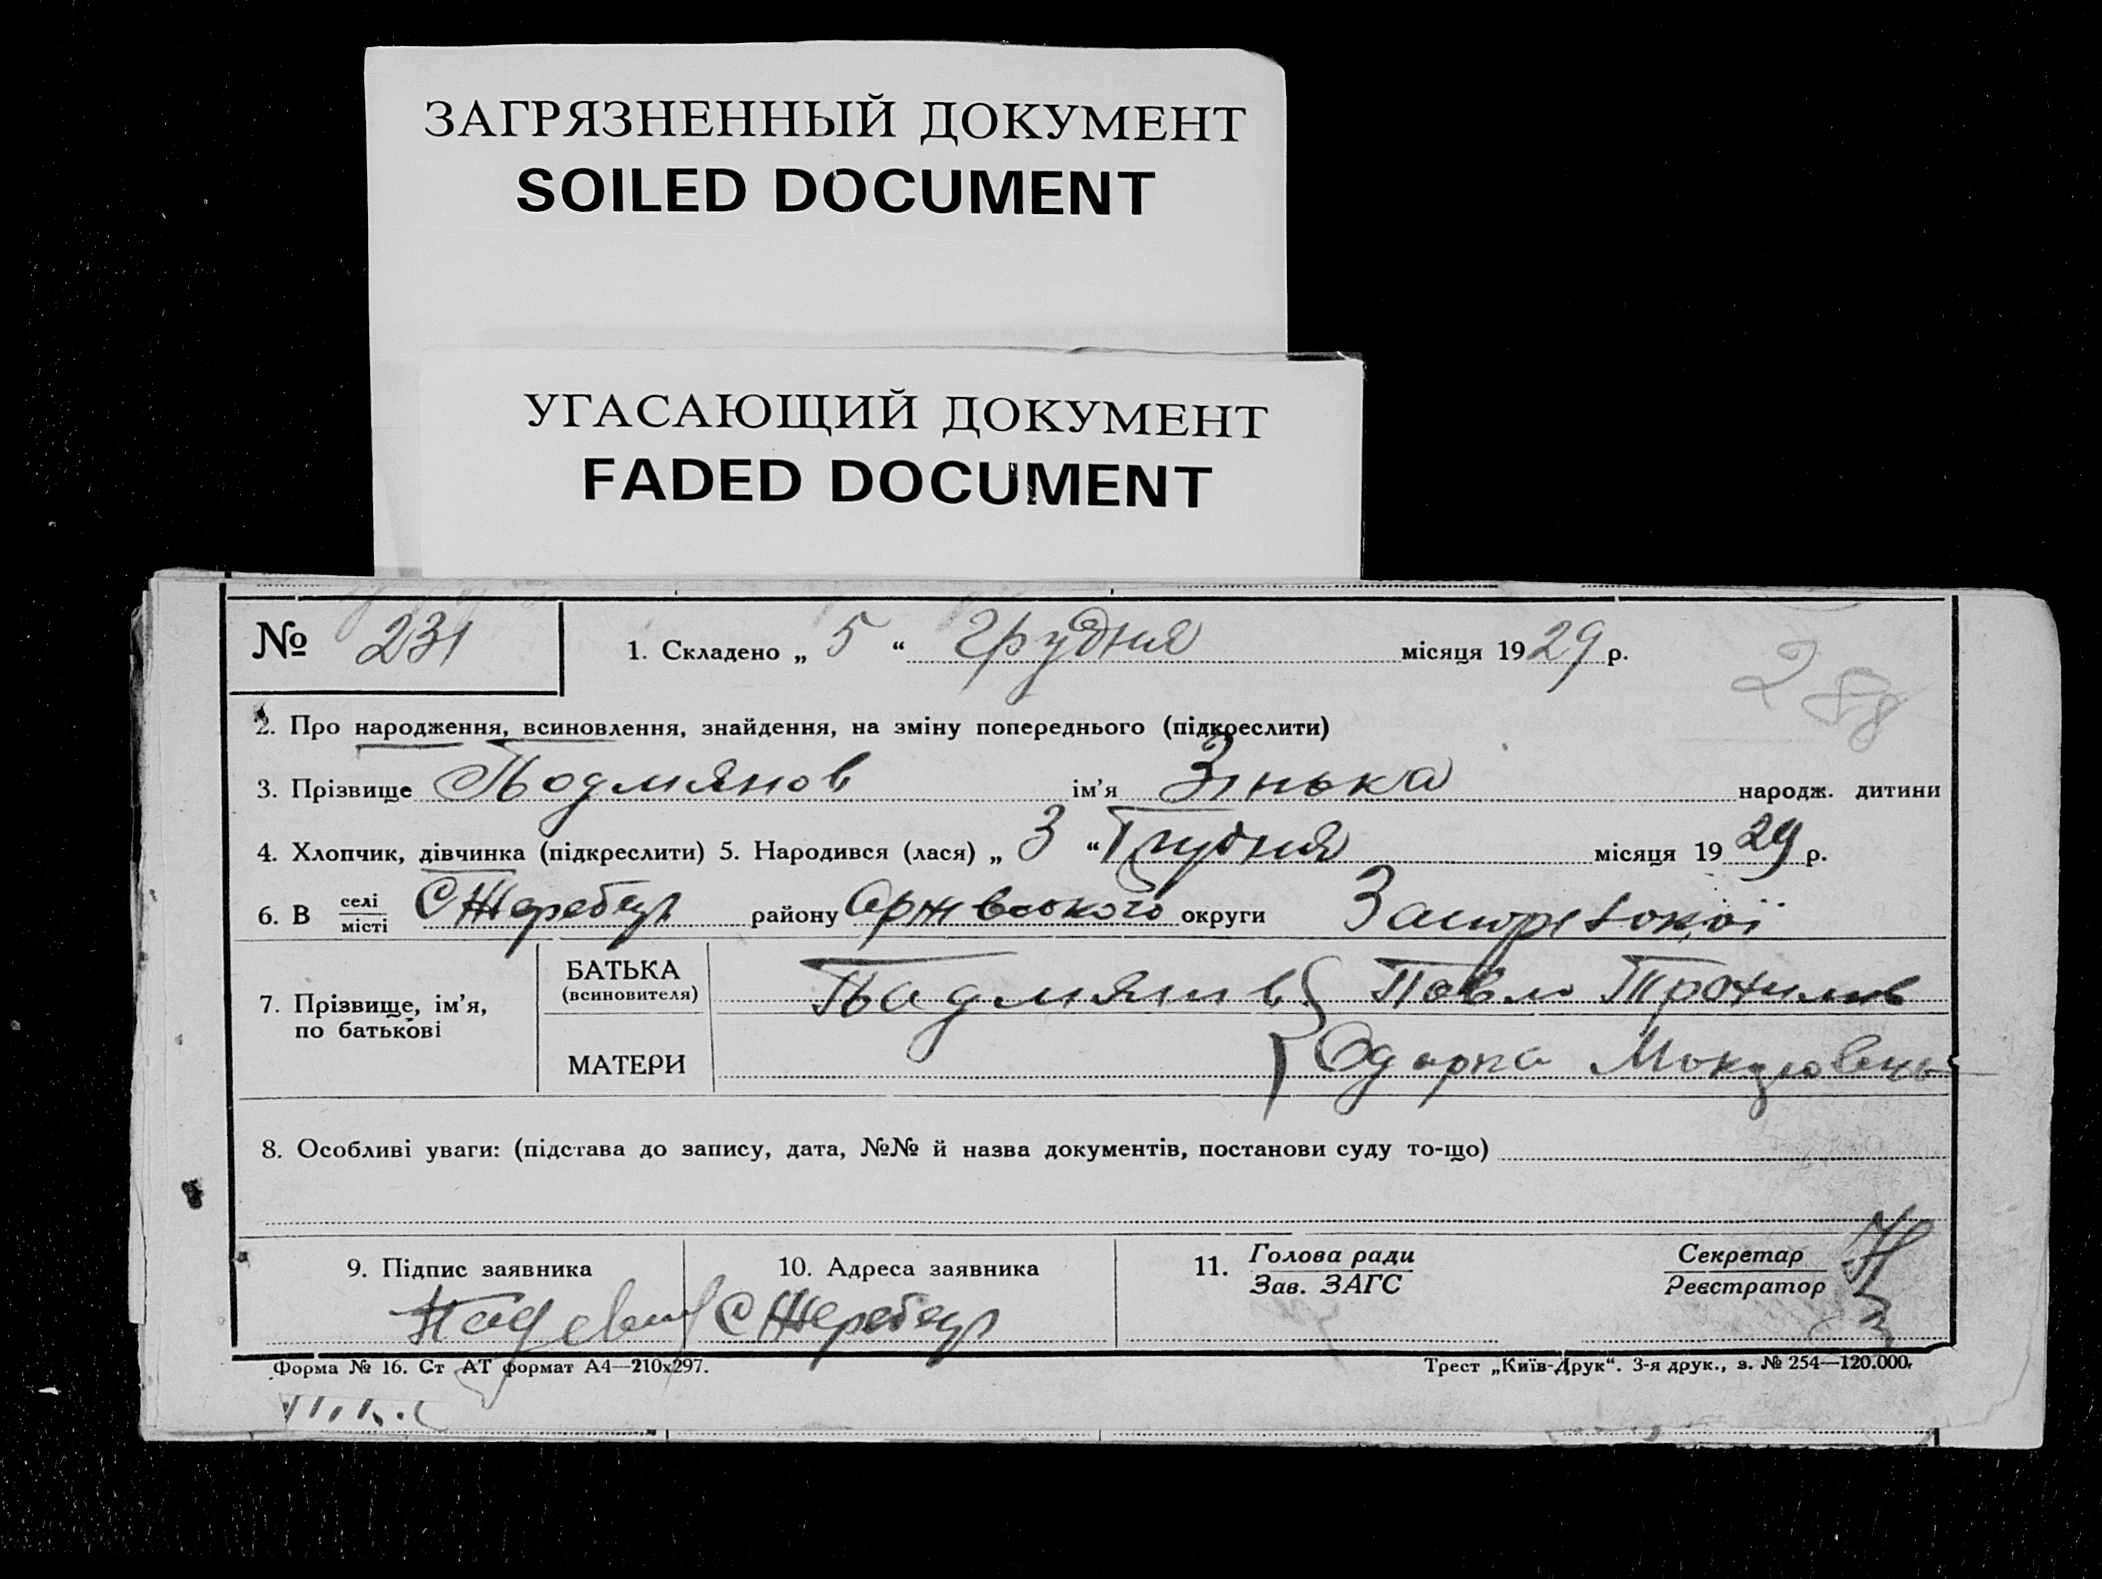 ЗАГРЯЗНЕННЫЙ ДОКУМЕНТ
SOILED DOCUMENT
УГАСАЮЩИЙ ДОКУМЕНТ
FADED DOCUMENT
№ 231 1. Складено „ 5 “ грудня місяця 1929 р.
288
2. Про народження, всиновлення, знайдення, на зміну попереднього (підкреслити)
3. Прізвище Подмянов ім’я Зінька народж. дитини
4. Хлопчик, дівчинка (підкреслити) 5. Народився (лася) „ 3 “ Грудня місяця 1929 р.
6. В селі С Жеребець району округи
місті
7. Прізвище, ім’я, по батькові
БАТЬКА Павло
(всиновителя)
МАТЕРИ Одарка
8. Особливі уваги: (підстава до запису, дата, №№ й назва документів, постанови суду то-що)
9. Підпис заявника
10. Адреса заявника
С Жеребець
11. Голова ради
Зав. ЗАГС
Секретар
Реєстратор
Форма № 16. Ст АТ формат А4—210х297.
Трест „Київ-Друк“. 3-я друк., з. № 254—120.000.